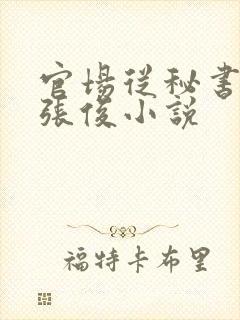 官場從秘書
張俊小說
福特卡布里